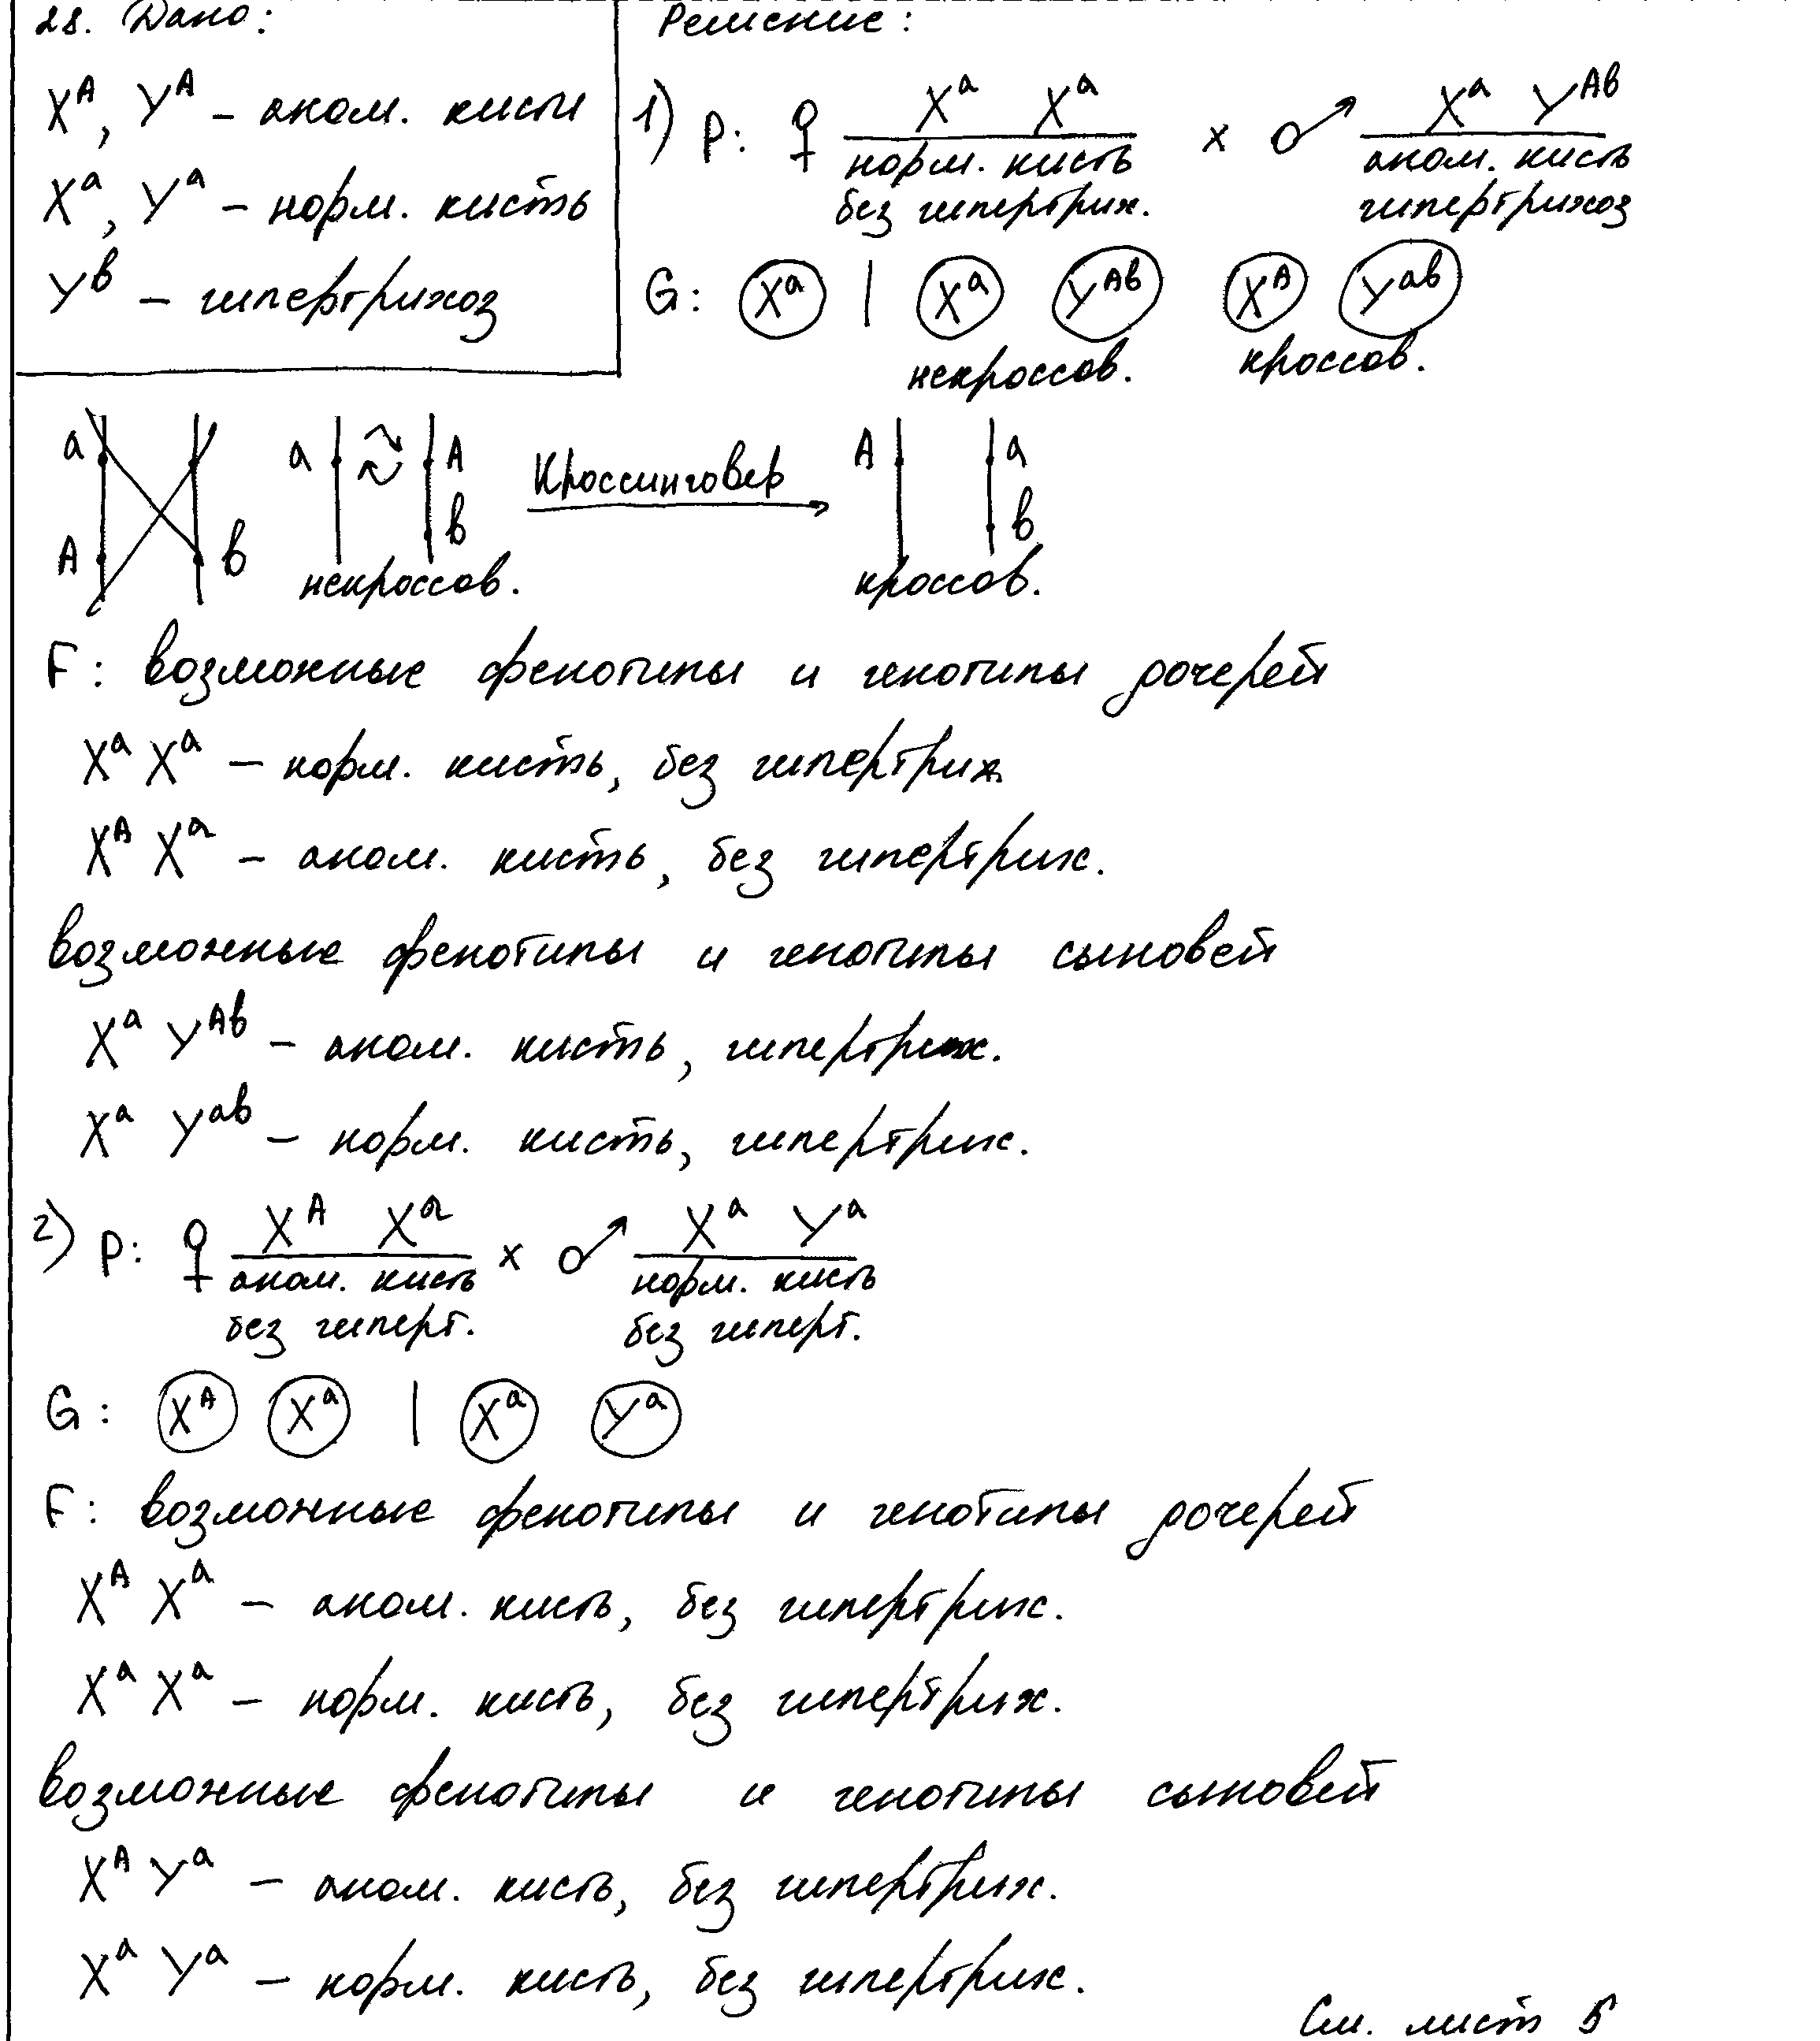 28. Дано:
X^A, Y^A – аном. кисти
X^a, Y^a – норм. кисть
Y^b – гипертрихоз
Решение:
1) P: ♀ X^a X^a x ♂ X^a Y^Ab
норм. кисть аном. кисть
без гипертрих. гипертрихоз
G: X^a | X^a Y^Ab X^A Y^ab
некроссов. кроссов.
a a A Кроссинговер A a
A b b b
некроссов. кроссов.
F: возможные фенотипы и генотипы дочерей
X^a X^a – норм. кисть, без гипертрих
X^A X^a – аном. кисть, без гипертрих.
возможные фенотипы и генотипы сыновей
X^a Y^Ab – аном. кисть, гипертрих.
X^a Y^ab – норм. кисть, гипертрих.
2) P: ♀ X^A X^a x ♂ X^a Y^a
аном. кисть норм. кисть
без гиперт. без гиперт.
G: X^A X^a | X^a Y^a
F: возможные фенотипы и генотипы дочерей
X^A X^a – аном. кисть, без гипертрих.
X^a X^a – норм. кисть, без гипертрих.
возможные фенотипы и генотипы сыновей
X^A Y^a – аном. кисть, без гипертрих.
X^a Y^a – норм. кисть, без гипертрих.
См. лист 5